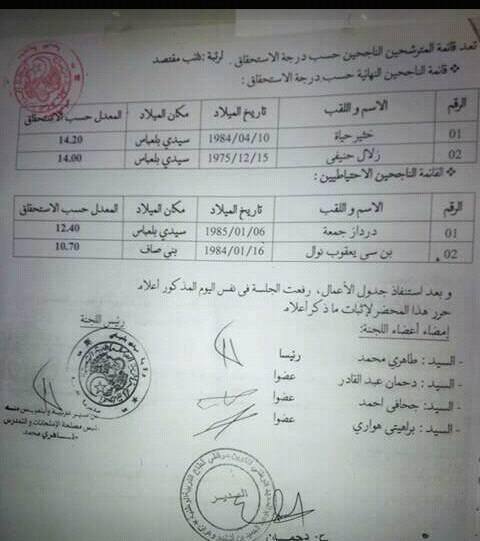 تعد قائمة المترشحين الناجحين حسب درجة الاستحقاق. لرتبة : نائب مقتصد
❖ قائمة الناجحين النهائية حسب درجة الاستحقاق :
الرقم الاسم و اللقب تاريخ الميلاد مكان الميلاد المعدل حسب الاستحقاق
01 خثير حياة 1984/04/10 سيدي بلعباس 14.20
02 زلال حنيفي 1975/12/15 سيدي بلعباس 14.00
❖ القائمة الناجحين الاحتياطيين :
الرقم الاسم و اللقب تاريخ الميلاد مكان الميلاد المعدل حسب الاستحقاق
01 درداز جمعة 1985/01/06 سيدي بلعباس 12.40
02 بن سي يعقوب نوال 1984/01/16 بني صاف 10.70
و بعد استنفاذ جدول الأعمال، رفعت الجلسة في نفس اليوم المذكور أعلاه
حرر هذا المحضر لإثبات ما ذكر أعلاه
إمضاء أعضاء اللجنة:
رئيس اللجنة
- السيد : طاهري محمد رئيسا
- السيد : دحمان عبد القادر عضوا
- السيد : جحافي احمد عضوا
- السيد : براهيتي هواري عضوا
رئيس مصلحة الإمتحانات و التمدرس
طاهري محمد
المدير
ع. دحمان